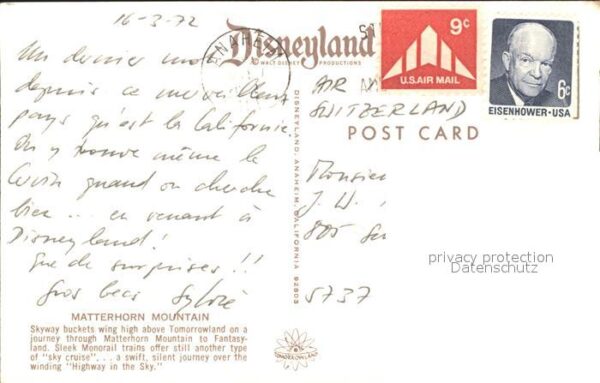 16-3-72
Disneyland
© WALT DISNEY PRODUCTIONS
ANAHEIM
9c
U.S. AIR MAIL
6c
EISENHOWER·USA
Un dernier mot
depuis ce merveilleux
pays qu'est la Californie.
On y trouve même le
Cervin quand on cherche
bien... en venant à
Disneyland!
Que de surprises!!
Gros becs Sylvie
AIR
SWITZERLAND
POST CARD
Monsieur
J. W.
5737
DISNEYLAND, ANAHEIM, CALIFORNIA 92803
privacy protection
Datenschutz
MATTERHORN MOUNTAIN
Skyway buckets wing high above Tomorrowland on a
journey through Matterhorn Mountain to Fantasy-
land. Sleek Monorail trains offer still another type
of "sky cruise" . . . a swift, silent journey over the
winding "Highway in the Sky."
TOMORROWLAND